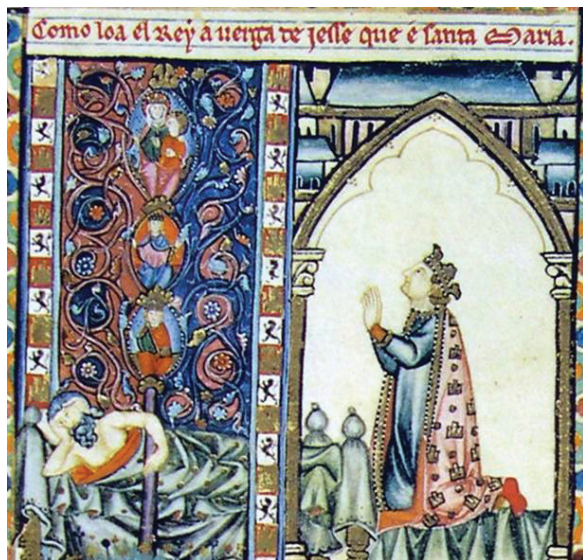 Como loa el Rey a uerga de jesse que é santa Maria.